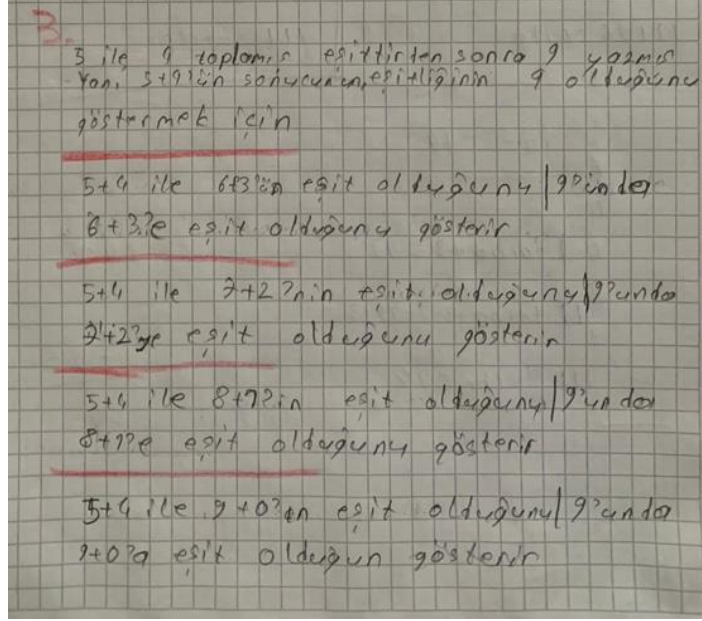 3.
5 ile 4 toplamış eşittirten sonra 9 yazmış
Yani 5+4'ün sonucunun, eşitliğinin 9 olduğunu
göstermek için
5+4 ile 6+3'ün eşit olduğunu | 9'unda
6+3'e eşit olduğunu gösterir
5+4 ile 7+2'nin eşit olduğunu | 9'unda
7+2'ye eşit olduğunu gösterir
5+4 ile 8+1'in eşit olduğunu | 9'unda
8+1'e eşit olduğunu gösterir
5+4 ile 9+0'ın eşit olduğunu | 9'unda
9+0'a eşit olduğun gösterir